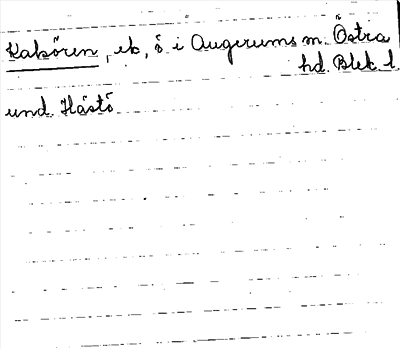 Kalören, ek, ö i Augerums m. Östra
hd. Blek. l.
und. Hästö